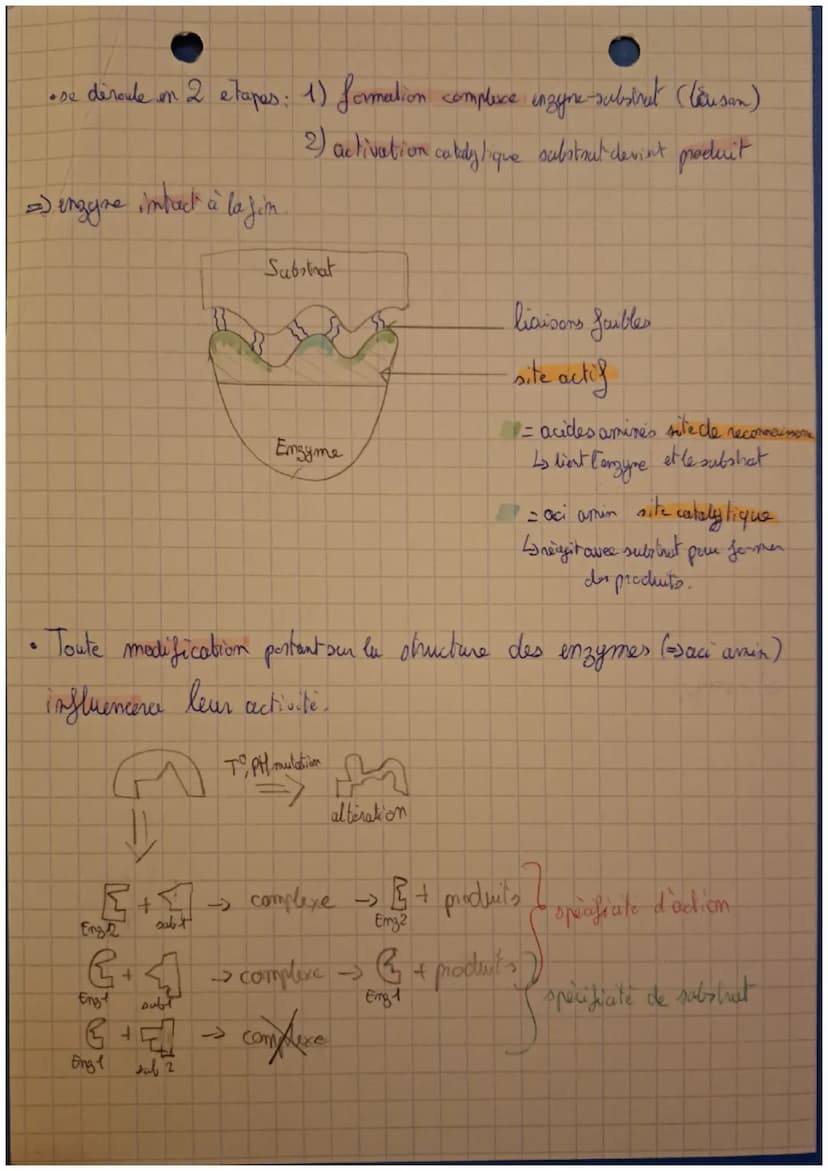 • se déroule en 2 etapes : 1) formation complexe enzyme-substrat (liaison)
2) activation catalytique substrat devient produit
=> enzyme intact à la fin.
Substrat
liaisons faibles
site actif
= acides aminés site de reconnaissance
↳ lient l'enzyme et le substrat
Enzyme
= aci amin site catalytique
↳ réagit avec substrat pour former
des produits.
• Toute modification portant sur la structure des enzymes (=> aci amin)
influencera leur activité.
T°, PH, mutation
altération
+ → complexe → + produits
Enz2 sub1 Enz2
spécificité d'action
+ → complexe → + produits
Enz1 sub1 Enz1
spécificité de substrat
+ → complexe
Enz1 sub 2